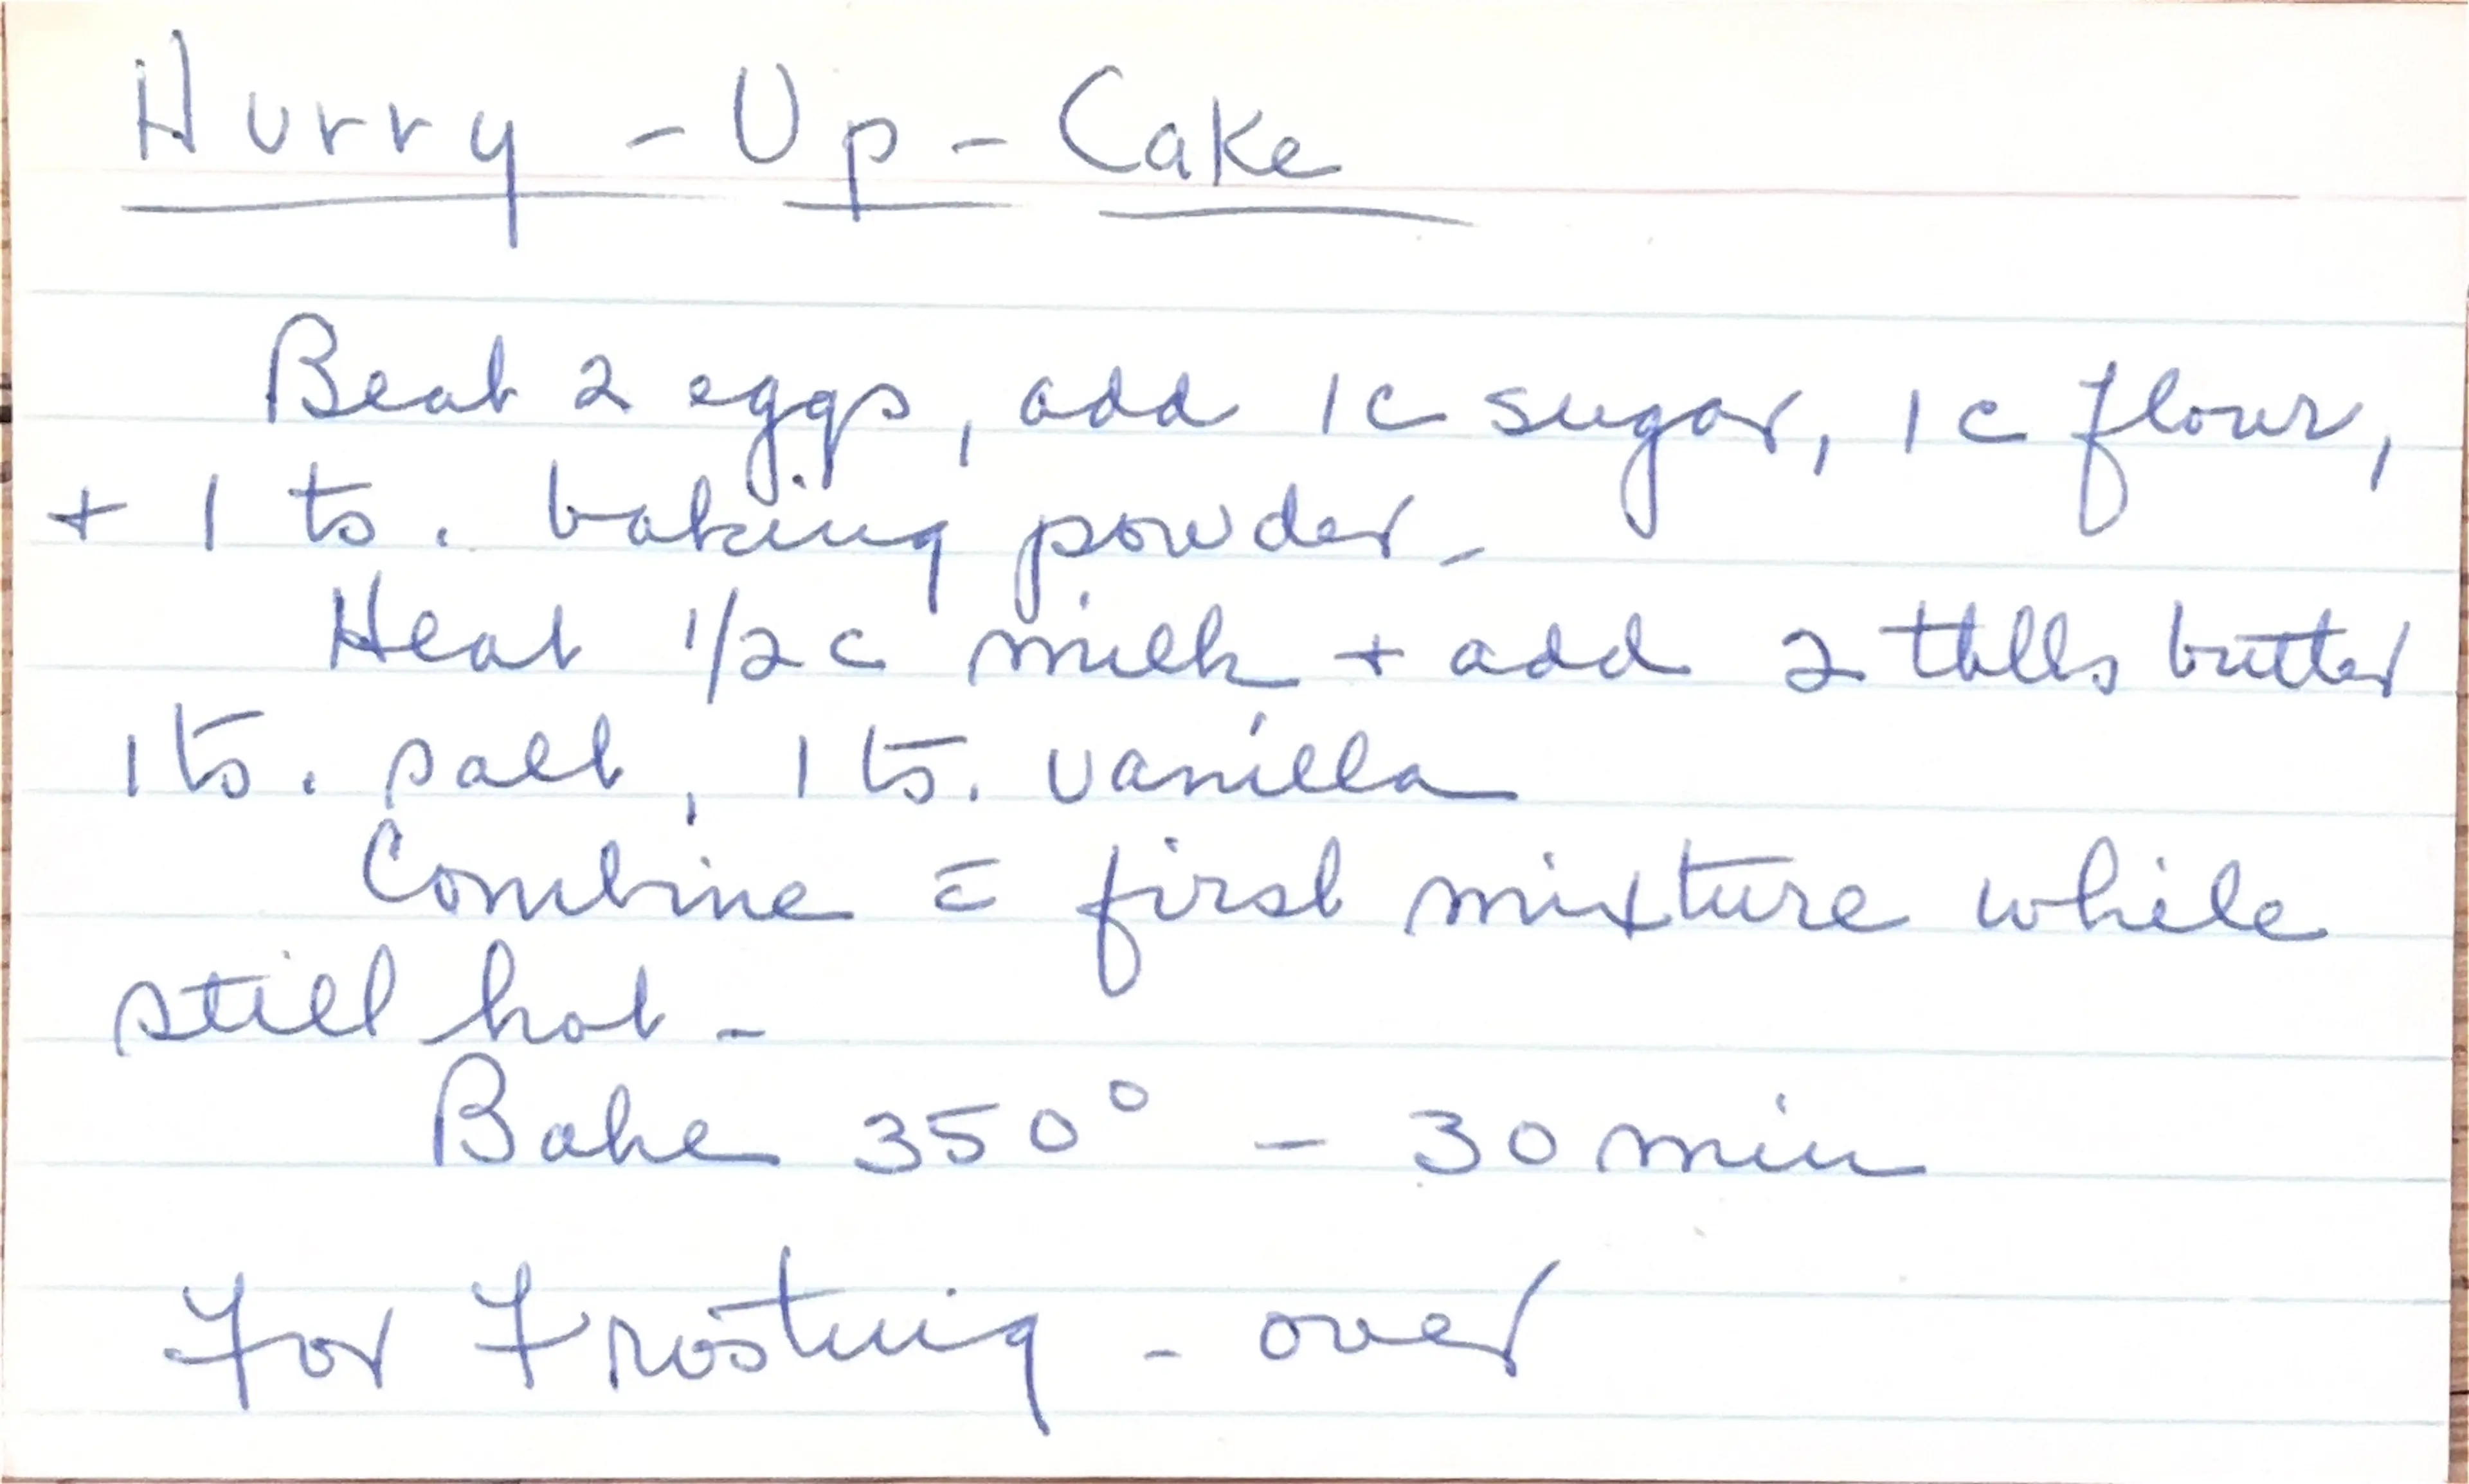 Hurry - Up - Cake
Beat 2 eggs, add 1c sugar, 1c flour,
+ 1 ts. baking powder -
Heat 1/2c milk + add 2 tbls butter
1 ts. salt, 1 ts. vanilla
Combine c̄ first mixture while
still hot -
Bake 350° - 30 min
For Frosting - over